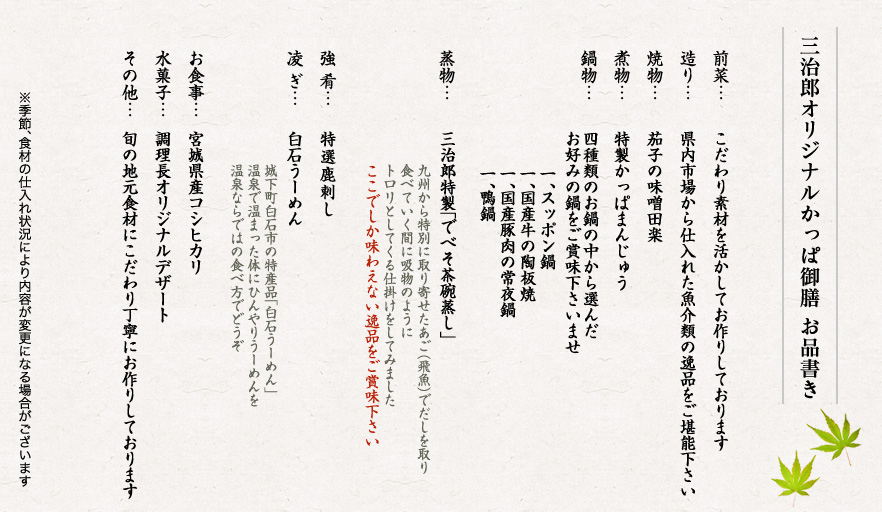 三治郎オリジナルかっぱ御膳 お品書き
前菜… こだわり素材を活かしてお作りしております
造り… 県内市場から仕入れた魚介類の逸品をご堪能下さい
焼物… 茄子の味噌田楽
煮物… 特製かっぱまんじゅう
鍋物… 四種類のお鍋の中から選んだ
お好みの鍋をご賞味下さいませ
一、スッポン鍋
一、国産牛の陶板焼
一、国産豚肉の常夜鍋
一、鴨鍋
蒸物… 三治郎特製「でべそ茶碗蒸し」
九州から特別に取り寄せたあご(飛魚)でだしを取り
食べていく間に吸物のように
トロリとしてくる仕掛けをしてみました
ここでしか味わえない逸品をご賞味下さい
強肴… 特選鹿刺し
凌ぎ… 白石うーめん
城下町白石市の特産品「白石うーめん」
温泉で温まった体にひんやりうーめんを
温泉ならではの食べ方でどうぞ
お食事… 宮城県産コシヒカリ
水菓子… 調理長オリジナルデザート
その他… 旬の地元食材にこだわり丁寧にお作りしております
※季節、食材の仕入れ状況により内容が変更になる場合がございます